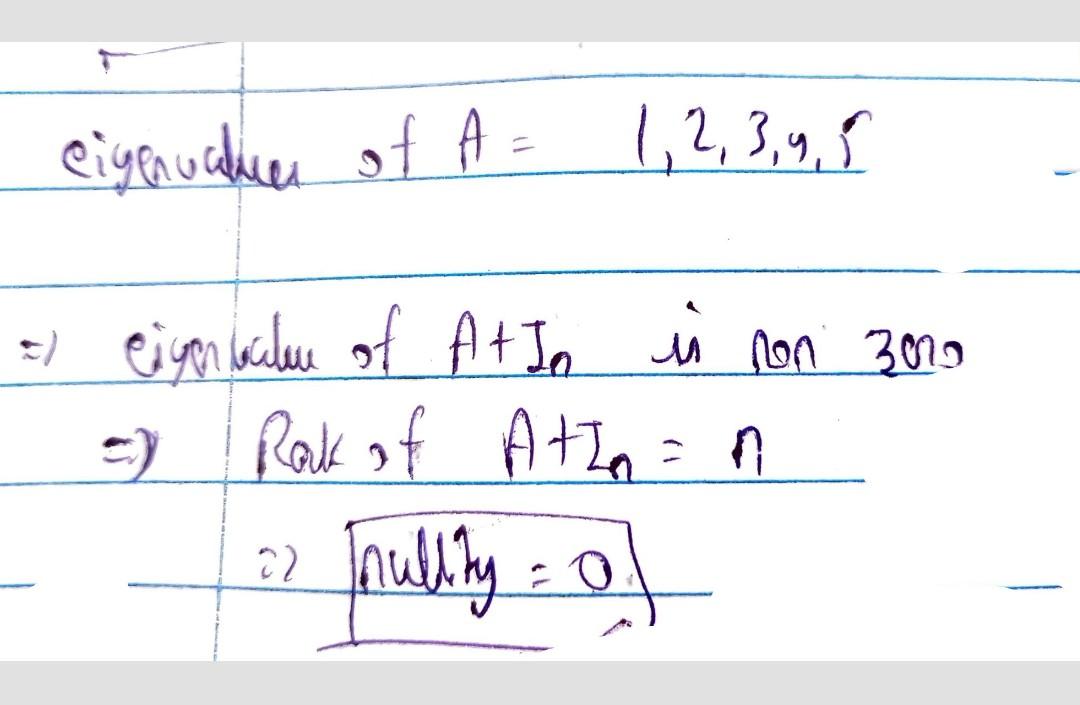 eigenvalues of A = 1, 2, 3, 4, 5
=) eigenvalue of A+In is non zero
=) Rank of A+In = n
=) nullity = 0